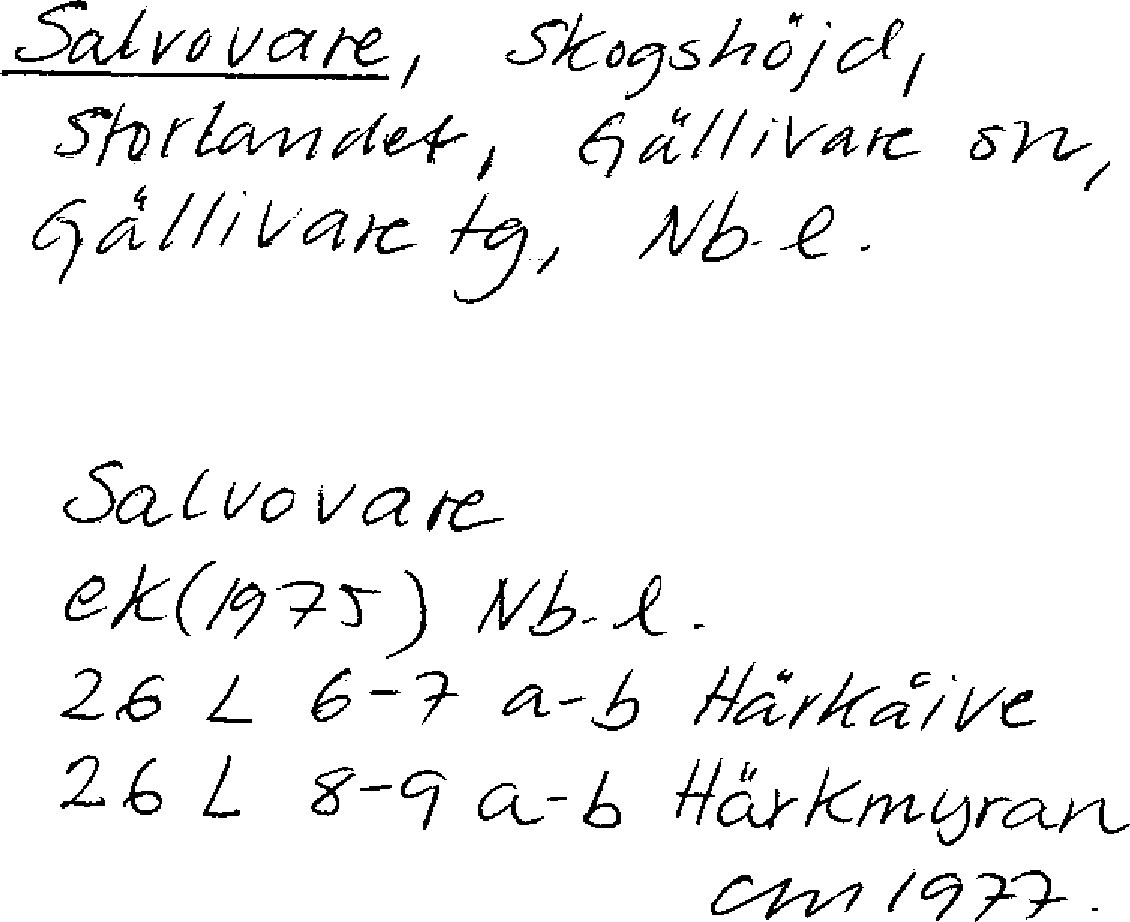 Salvovare, Skogshöjd,
Storlandet, Gällivare sn,
Gällivare tg, Nb. l.
Salvovare
ek (1975) Nb. l.
26 L 6-7 a-b Härkåive
26 L 8-9 a-b Härkmyran
cm 1977.